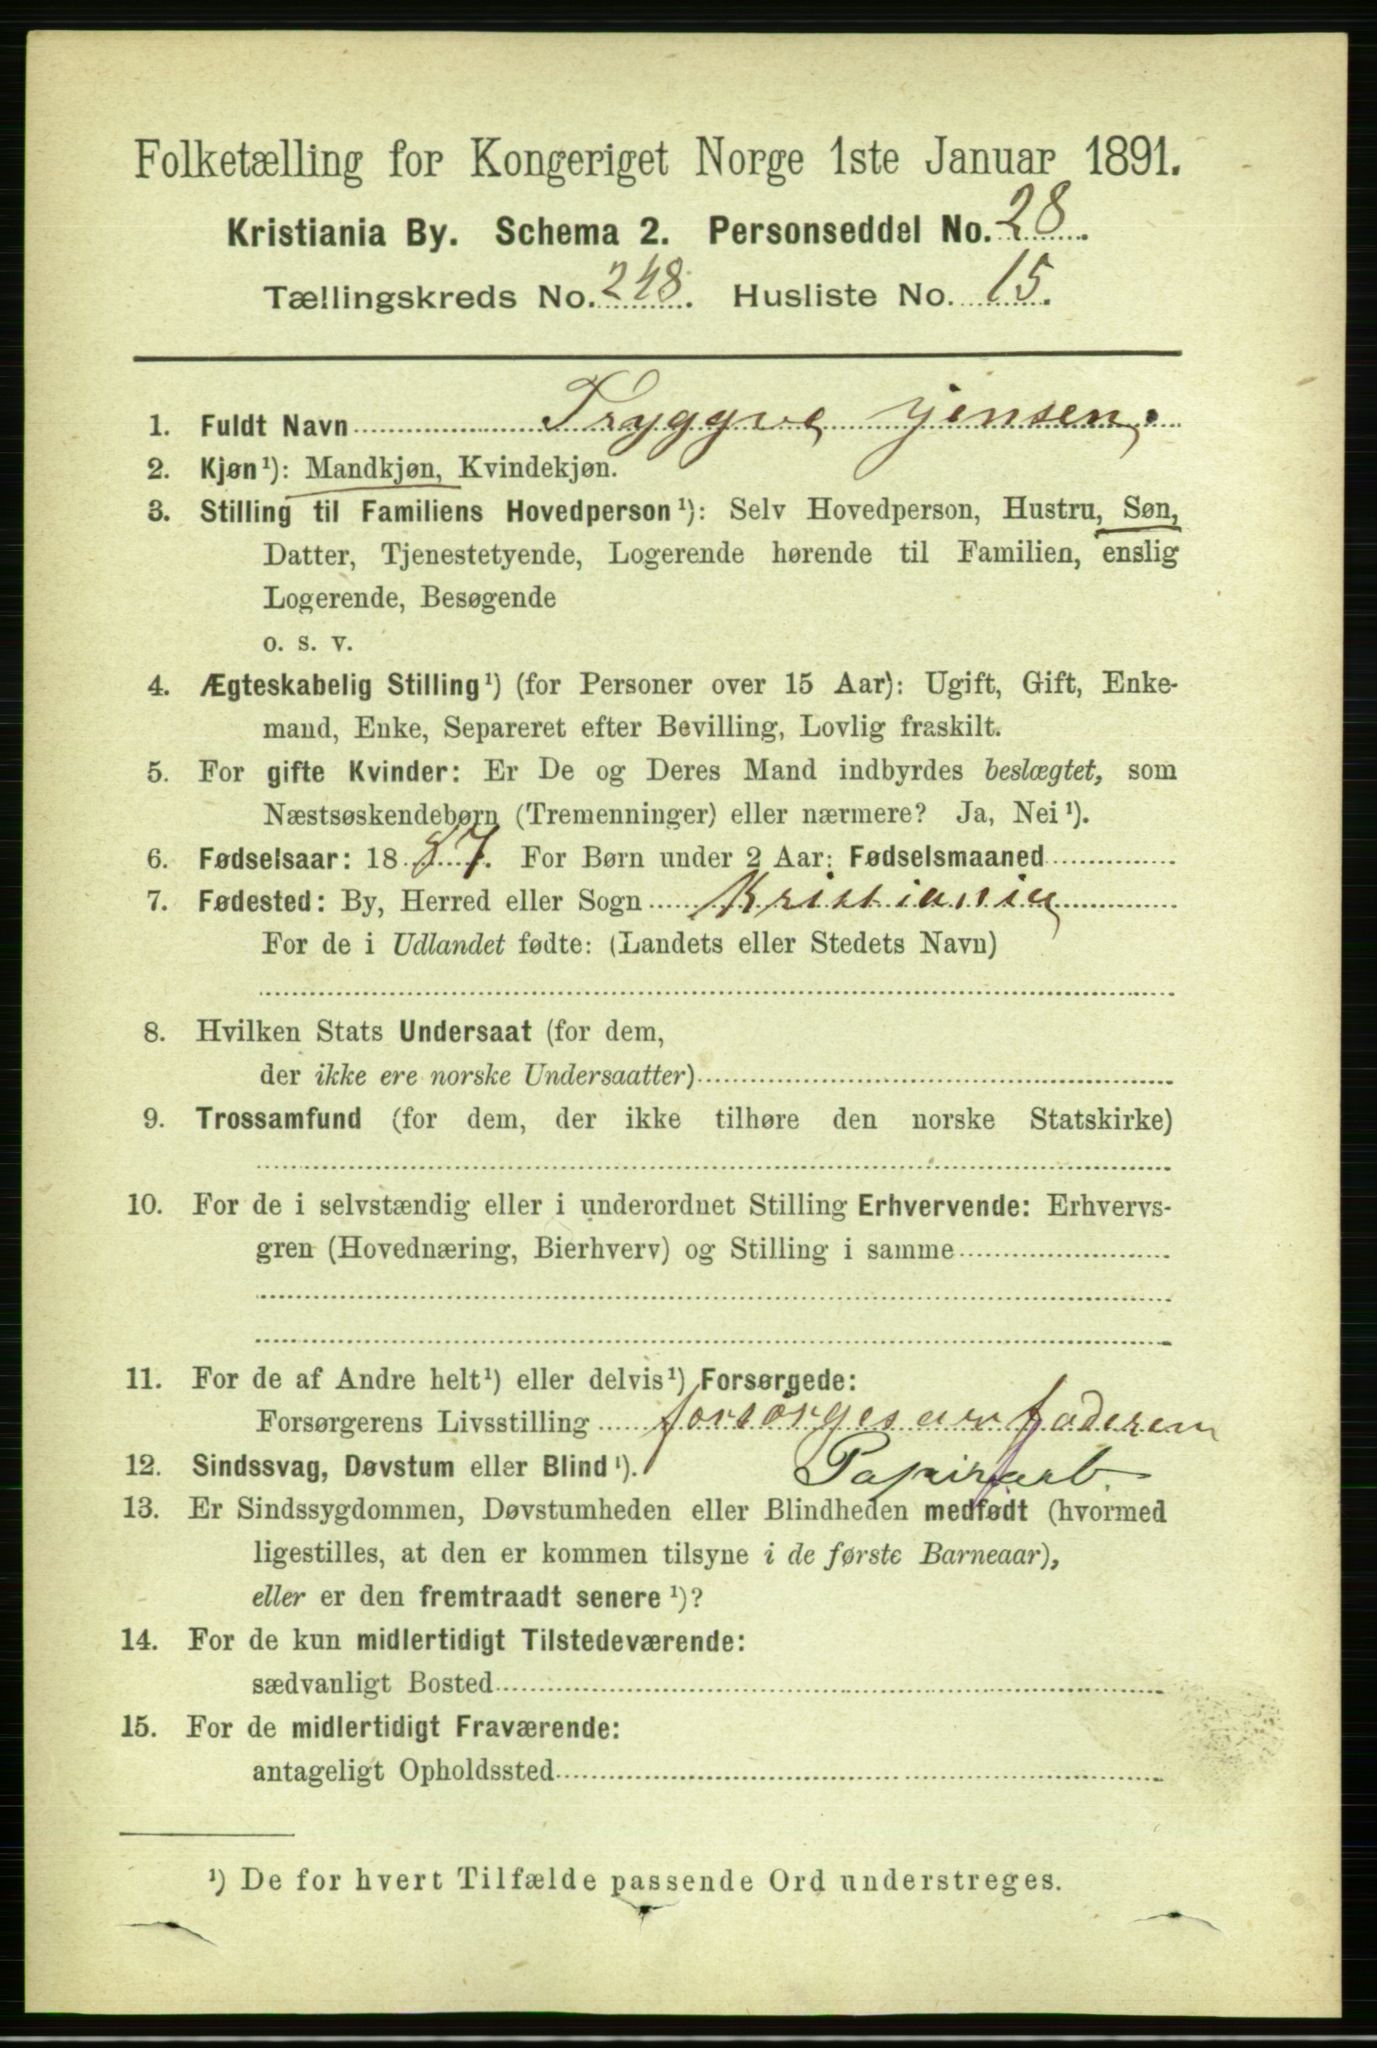 Folketælling for Kongeriget Norge 1ste Januar 1891.
Kristiania By. Schema 2. Personseddel No. 28.
Tællingskreds No. 248. Husliste No. 15.
1. Fuldt Navn Tryggve Jensen.
2. Kjøn¹): Mandkjøn, Kvindekjøn.
3. Stilling til Familiens Hovedperson¹): Selv Hovedperson, Hustru, Søn,
Datter, Tjenestetyende, Logerende hørende til Familien, enslig
Logerende, Besøgende
o. s. v.
4. Ægteskabelig Stilling¹) (for Personer over 15 Aar): Ugift, Gift, Enke-
mand, Enke, Separeret efter Bevilling, Lovlig fraskilt.
5. For gifte Kvinder: Er De og Deres Mand indbyrdes beslægtet, som
Næstsøskendebørn (Tremenninger) eller nærmere? Ja, Nei¹).
6. Fødselsaar: 1887. For Børn under 2 Aar: Fødselsmaaned
7. Fødested: By, Herred eller Sogn Kristiania
For de i Udlandet fødte: (Landets eller Stedets Navn)
8. Hvilken Stats Undersaat (for dem,
der ikke ere norske Undersaatter)
9. Trossamfund (for dem, der ikke tilhøre den norske Statskirke)
10. For de i selvstændig eller i underordnet Stilling Erhvervende: Erhvervs-
gren (Hovednæring, Bierhverv) og Stilling i samme
11. For de af Andre helt¹) eller delvis¹) Forsørgede:
Forsørgerens Livsstilling forsørges av faderen
12. Sindssvag, Døvstum eller Blind¹). Papirarb.
13. Er Sindssygdommen, Døvstumheden eller Blindheden medfødt (hvormed
ligestilles, at den er kommen tilsyne i de første Barneaar),
eller er den fremtraadt senere¹)?
14. For de kun midlertidigt Tilstedeværende:
sædvanligt Bosted
15. For de midlertidigt Fraværende:
antageligt Opholdssted
¹) De for hvert Tilfælde passende Ord understreges.